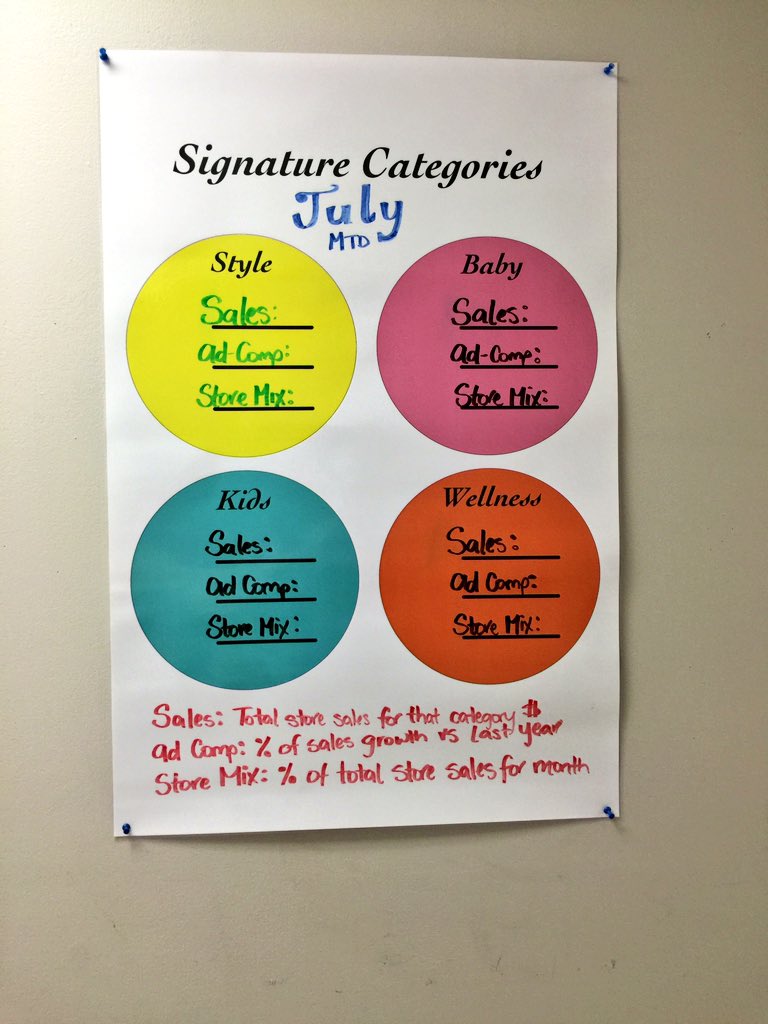 Signature Categories
July
MTD
Style
Sales:
ad-Comp:
Store Mix:
Baby
Sales:
ad-Comp:
Store Mix:
Kids
Sales:
ad Comp:
Store Mix:
Wellness
Sales:
ad Comp:
Store Mix:
Sales: Total store sales for that category $
ad Comp: % of sales growth vs Last year
Store Mix: % of total store sales for month